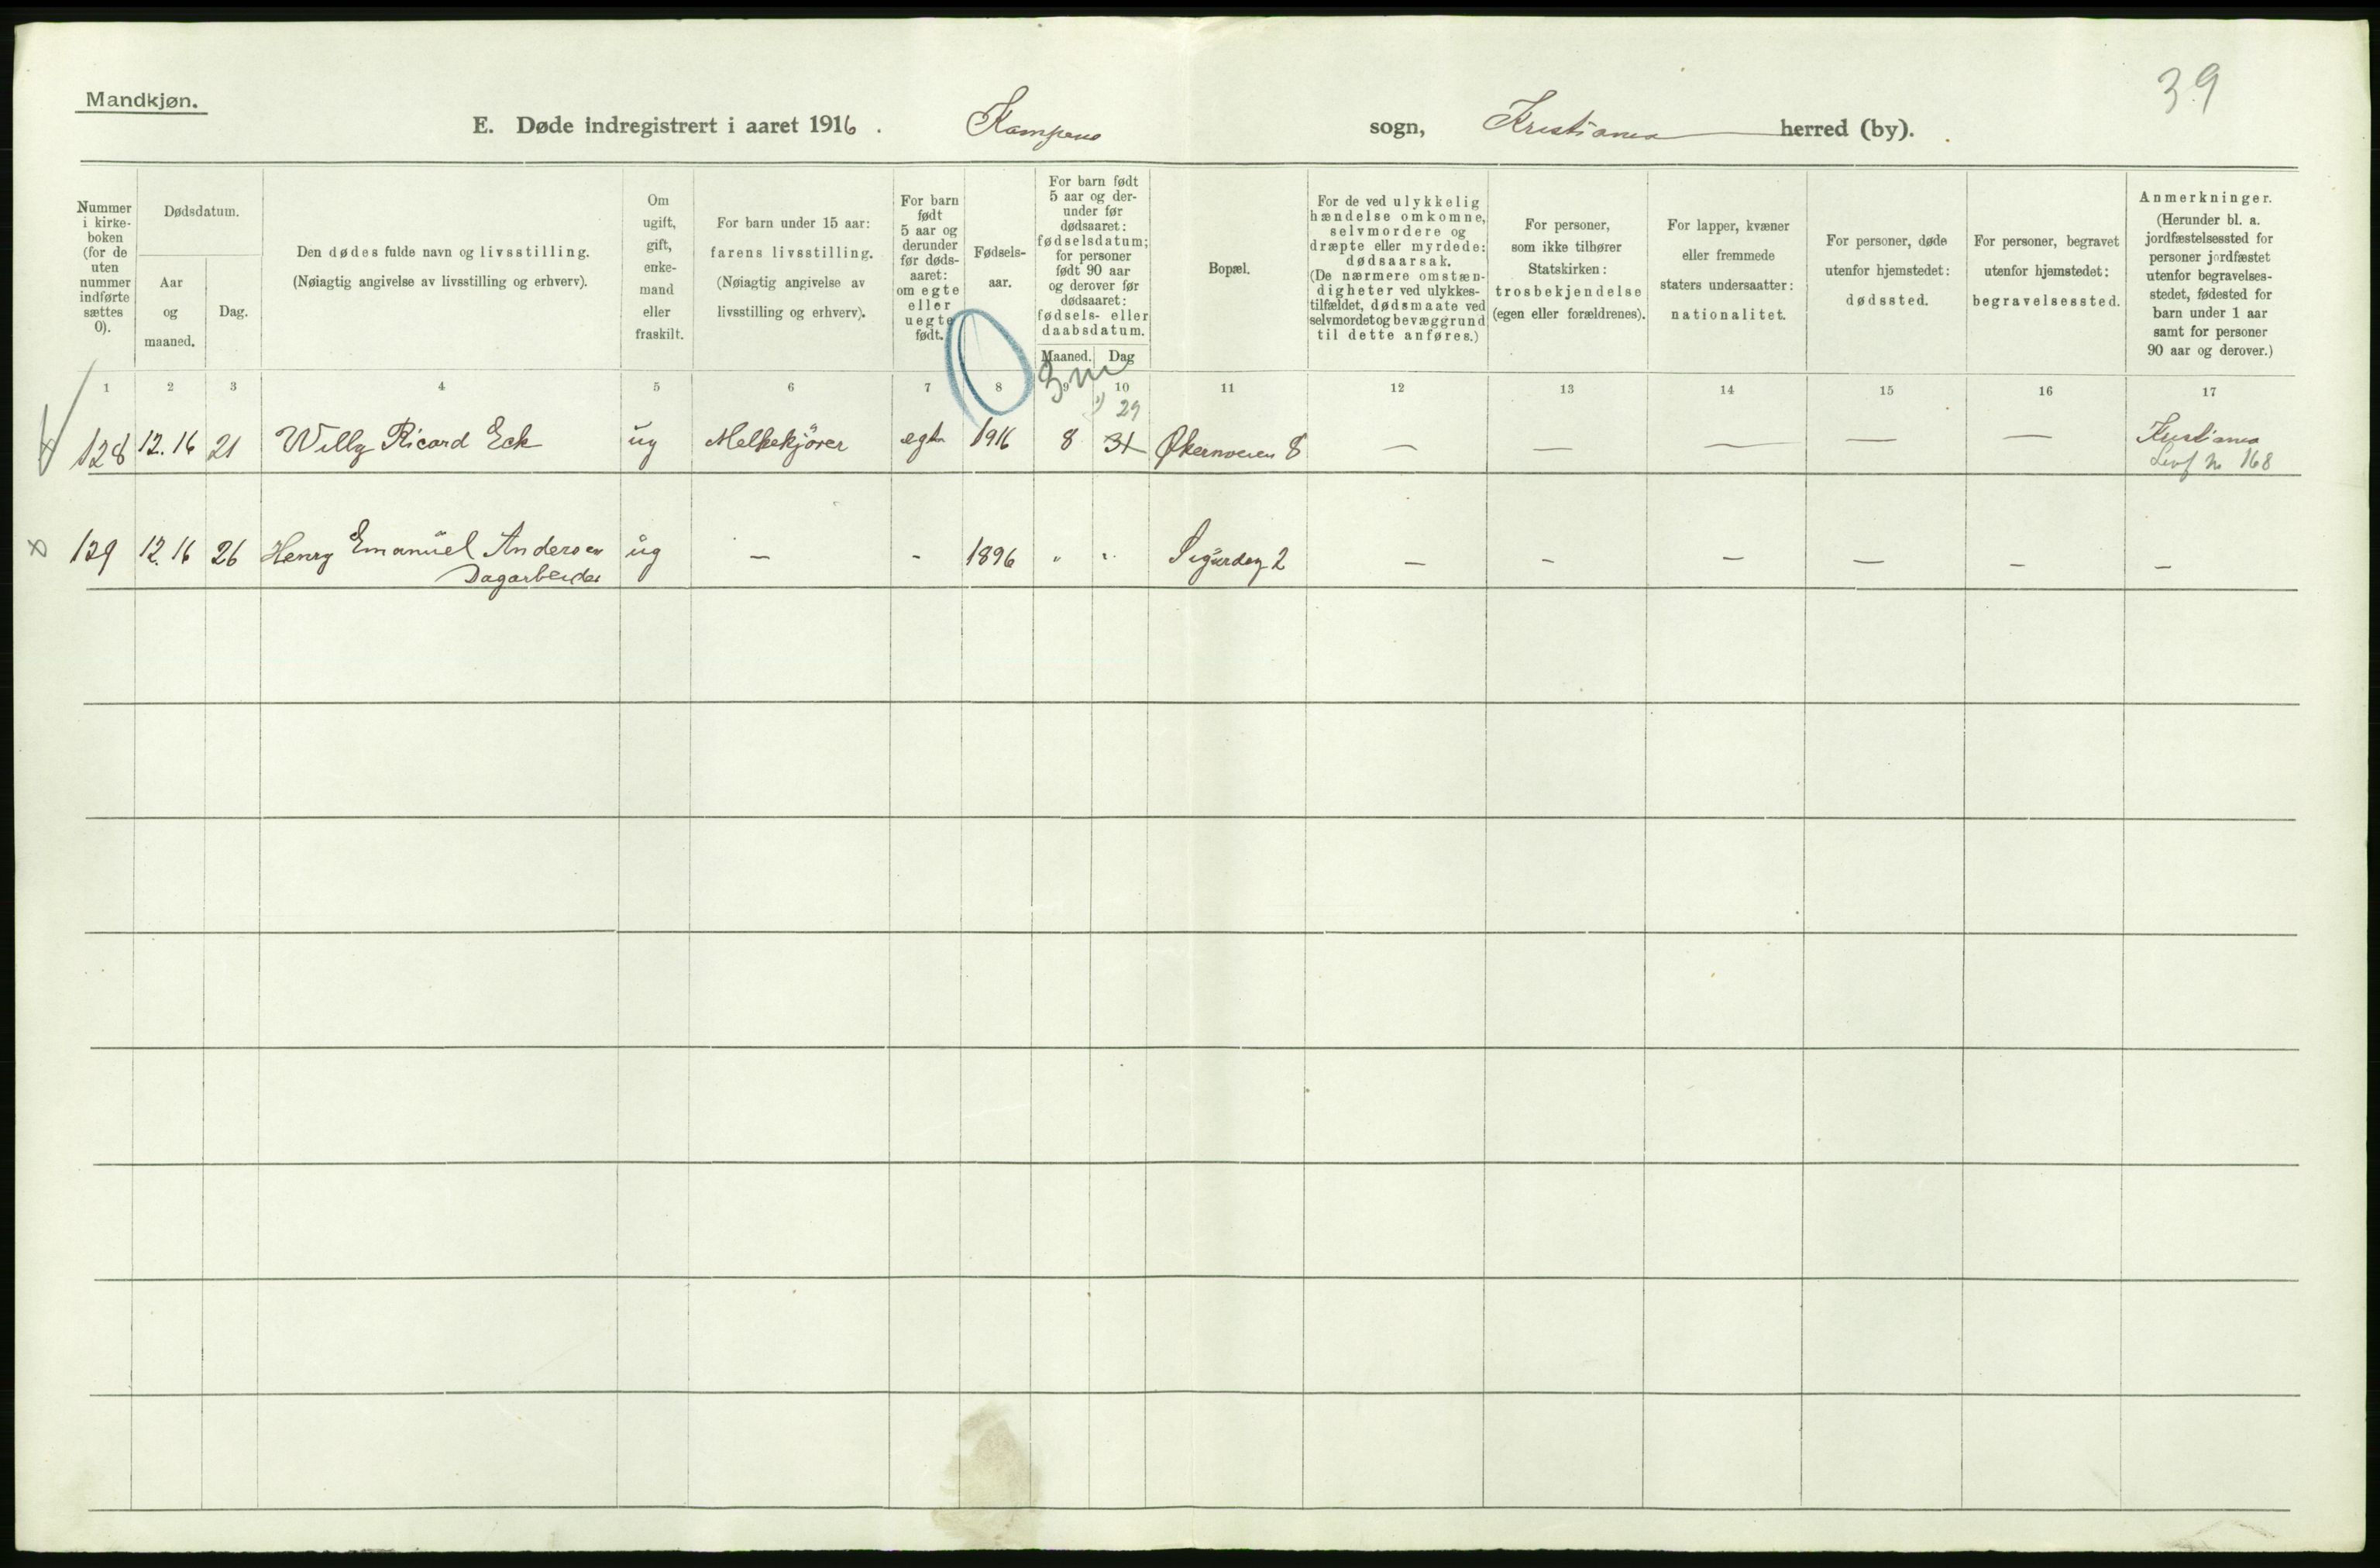 39
Mandkjøn.
E. Døde indregistrert i aaret 1916. Kampens sogn, Kristiania herred (by).
Nummer
i kirke-
boken
(for de
uten
nummer
indførte
sættes
0).
Dødsdatum.
Aar
og
maaned.
Dag.
Den dødes fulde navn og livsstilling.
(Nøiagtig angivelse av livsstilling og erhverv).
Om
ugift,
gift,
enke-
mand
eller
fraskilt.
For barn under 15 aar:
farens livsstilling.
(Nøiagtig angivelse av
livsstilling og erhverv).
For barn
født
5 aar og
derunder
før døds-
aaret:
om egte
eller
uegte
født.
Fødsels-
aar.
For barn født
5 aar og der-
under før
dødsaaret:
fødselsdatum;
for personer
født 90 aar
og derover før
dødsaaret:
fødsels- eller
daabsdatum.
Maaned. Dag
Bopæl.
For de ved ulykkelig
hændelse omkomne,
selvmordere og
dræpte eller myrdede:
dødsaarsak.
(De nærmere omstæn-
digheter ved ulykkes-
tilfældet, dødsmaate ved
selvmordet og bevæggrund
til dette anføres.)
For personer,
som ikke tilhører
Statskirken:
trosbekjendelse
(egen eller forældrenes).
For lapper, kvæner
eller fremmede
staters undersaatter:
nationalitet.
For personer, døde
utenfor hjemstedet:
dødssted.
For personer, begravet
utenfor hjemstedet:
begravelsessted.
Anmerkninger.
(Herunder bl. a.
jordfæstelsessted for
personer jordfæstet
utenfor begravelses-
stedet, fødested for
barn under 1 aar
samt for personer
90 aar og derover.)
1 2 3 4 5 6 7 8 9 10 11 12 13 14 15 16 17
0 3 m
29
128 12.16 21 Willy Ricard Eck ug Melkekjører egte 1916 8 31 Økernveien 8 — — — — — Kristiania
168
129 12.16 26 Henry Emanuel Andersen ug — - 1896 " " Sigurdsg 2 — — — — — —
Dagarbeider